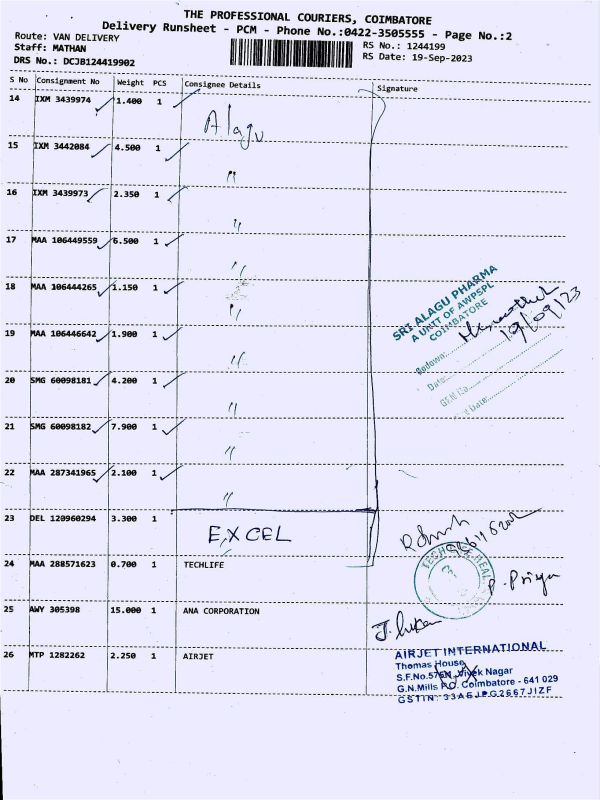 THE PROFESSIONAL COURIERS, COIMBATORE
Delivery Runsheet - PCM - Phone No.:0422-3505555 - Page No.:2
Route: VAN DELIVERY
Staff: MATHAN
DRS No.: DCJB124419902
RS No.: 1244199
RS Date: 19-Sep-2023
S No Consignment No Weight PCS Consignee Details Signature
14 IXM 3439974 1.400 1 Alagu
15 IXM 3442084 4.500 1 "
16 IXM 3439973 2.350 1 "
17 MAA 106449559 6.500 1 "
18 MAA 106444265 1.150 1 "
19 MAA 106446642 1.900 1 "
20 SMG 60098181 4.200 1 "
21 SMG 60098182 7.900 1 "
22 MAA 287341965 2.100 1 "
SRI ALAGU PHARMA
A UNIT OF AWPSPL
COIMBATORE
Godown:
19/09/23
Date:
GEN No.
Date:
23 DEL 120960294 3.300 1 EXCEL
24 MAA 288571623 0.700 1 TECHLIFE
P. Priya
25 AWY 305398 15.000 1 ANA CORPORATION
26 MTP 1282262 2.250 1 AIRJET
AIRJET INTERNATIONAL
Thomas House
Vivek Nagar
G.N.Mills P.O. Coimbatore - 641 029